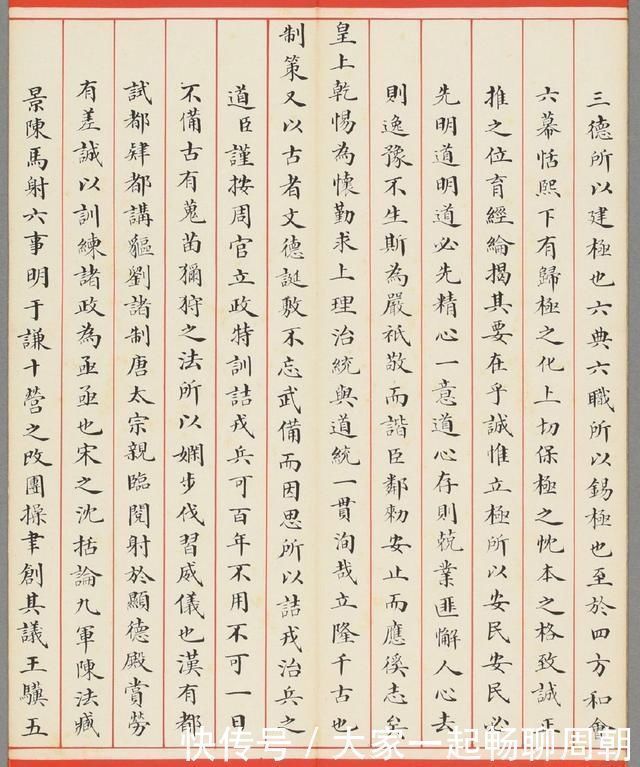 三德所以建極也六典六職所以錫極也至於四方和會
六幕恬熙下有歸極之化上切保極之忱本之格致誠正
推之位育經綸揭其要在乎誠惟立極所以安民安民必
先明道明道必先精心一意道心存則兢業匪懈人心去
則逸豫不生斯為嚴祇敬而諧臣鄰勑安止而應徯志矣
皇上乾惕為懷勤求上理治統與道統一貫洵哉立隆千古也
制策又以古者文德誕敷不忘武備而因思所以詰戎治兵之
道臣謹按周官立政特訓詰戎兵可百年不用不可一日
不備古有蒐苗獮狩之法所以嫻步伐習威儀也漢有都
試都肄都講貙劉諸制唐太宗親臨閱射於顯德殿賞勞
有差誠以訓練諸政為亟亟也宋之沈括論九軍陳法臧
景陳馬射六事明于謙十營之改團操聿創其議王驥五
快传号 / 大家一起畅聊周朝